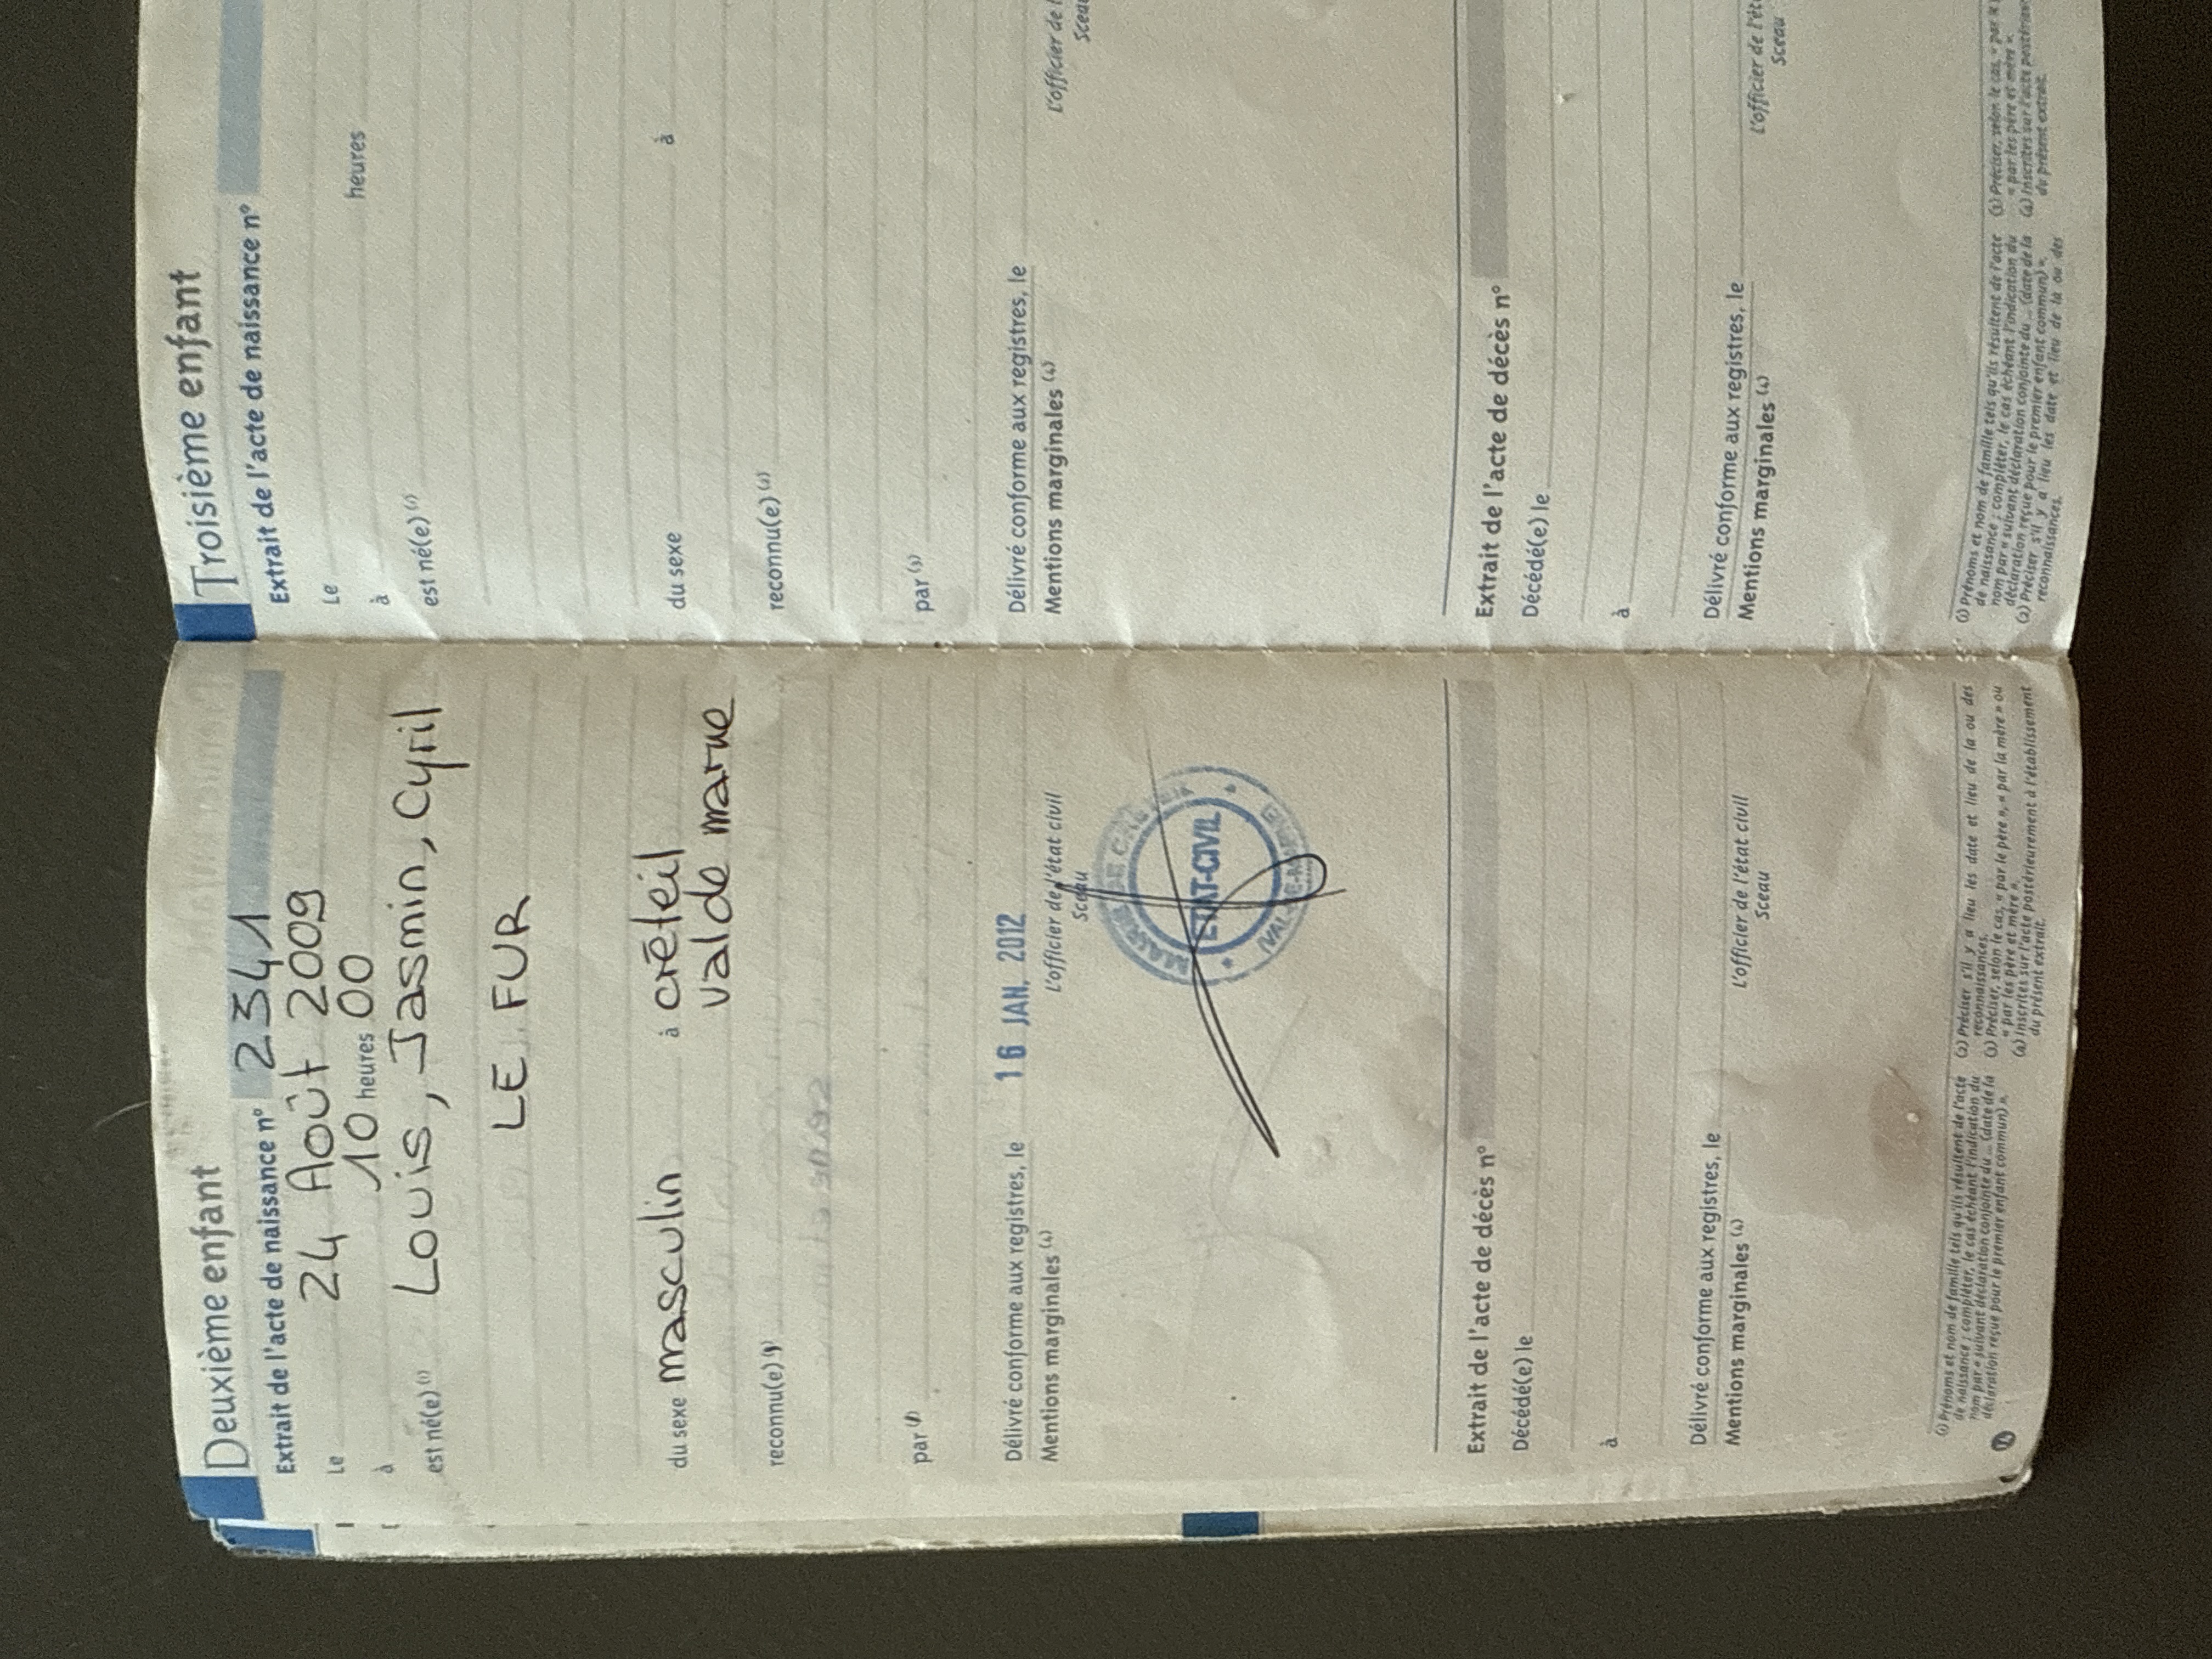 Deuxième enfant
Extrait de l'acte de naissance n° 2341
Le 24 Août 2009
à 10 heures 00
est né(e) (1) Louis, Jasmin, Cyril
LE FUR
du sexe masculin à créteil
val de marne
reconnu(e)
par
Délivré conforme aux registres, le 16 JAN. 2012
Mentions marginales (4)
L'officier de l'état civil
Sceau
MAIRIE DE CRÉTEIL
ETAT-CIVIL
(VAL-DE-MARNE)
Extrait de l'acte de décès n°
Décédé(e) le
à
Délivré conforme aux registres, le
Mentions marginales (4)
L'officier de l'état civil
Sceau
(1) Prénoms et nom de famille tels qu'ils résultent de l'acte
de naissance ; compléter, le cas échéant l'indication du
nom par « suivant déclaration conjointe du ... (date de la
déclaration reçue pour le premier enfant commun) ».
(2) Préciser s'il y a lieu les date et lieu de la ou des
reconnaissances.
(3) Préciser, selon le cas, « par le père », « par la mère » ou
« par les père et mère ».
(4) Inscrites sur l'acte postérieurement à l'établissement
du présent extrait.
Troisième enfant
Extrait de l'acte de naissance n°
Le
à heures
est né(e) (1)
du sexe à
reconnu(e) (2)
par (3)
Délivré conforme aux registres, le
Mentions marginales (4)
L'officier de l'
Sceau
Extrait de l'acte de décès n°
Décédé(e) le
à
Délivré conforme aux registres, le
Mentions marginales (4)
L'officier de l'ét
Sceau
(1) Prénoms et nom de famille tels qu'ils résultent de l'acte
de naissance ; compléter, le cas échéant l'indication du
nom par « suivant déclaration conjointe du ... (date de la
déclaration reçue pour le premier enfant commun) ».
(2) Préciser s'il y a lieu les date et lieu de la ou des
reconnaissances.
(3) Préciser, selon le cas, « par
« par les père et mère ».
(4) Inscrites sur l'acte postérieu
du présent extrait.